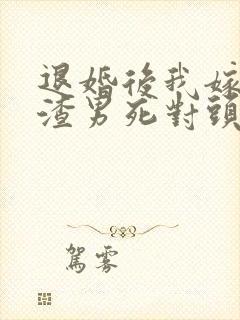 退婚後我嫁
渣男死對頭
駕霧